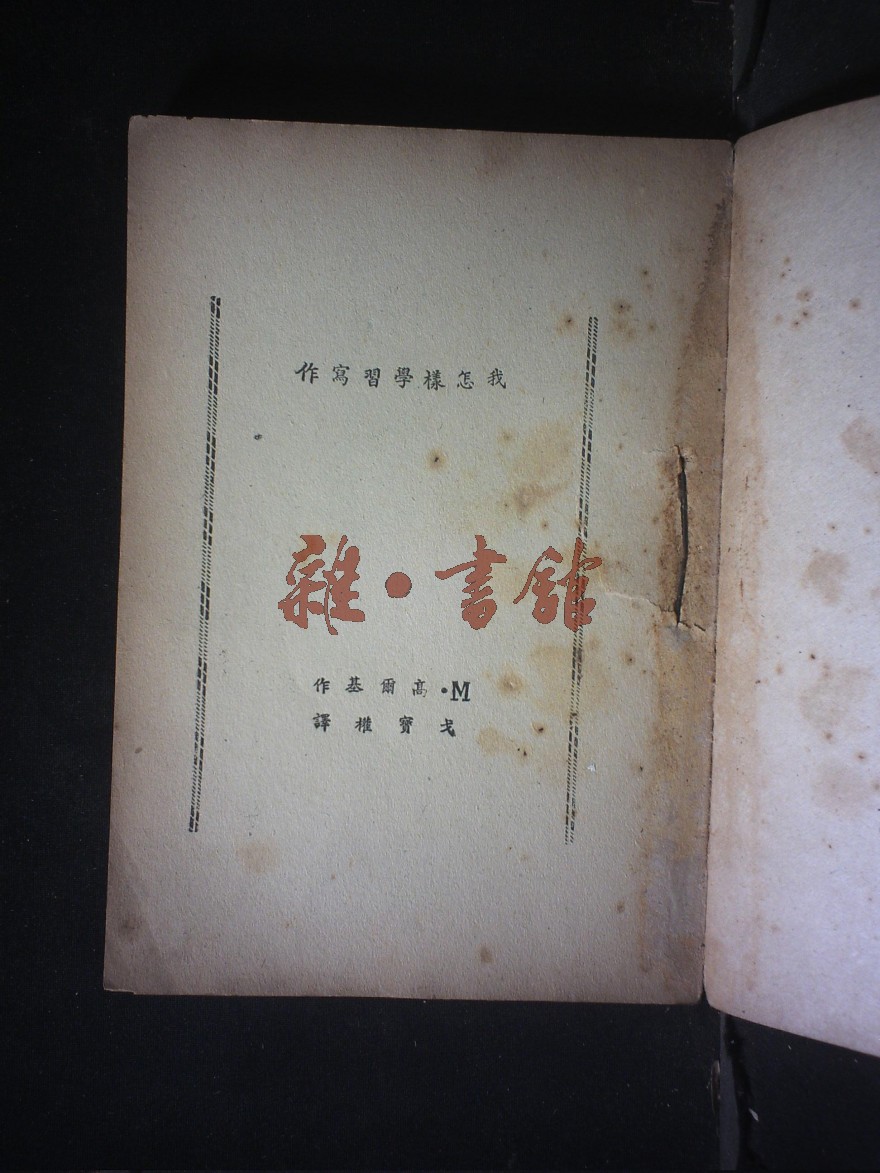 我怎樣學習寫作
雜·書館
M·高爾基作
戈寶權譯